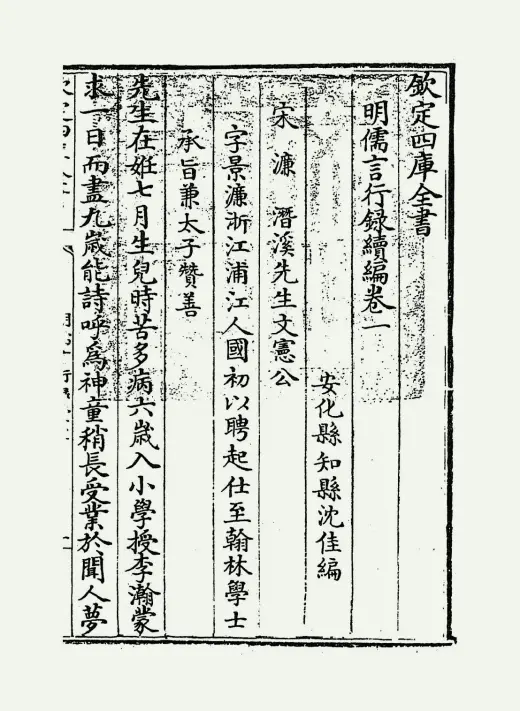 欽定四庫全書
明儒言行録續編卷一
安化縣知縣沈佳編
宋濂 潛溪先生文憲公
字景濂浙江浦江人國初以聘起仕至翰林學士
承旨兼太子贊善
先生在姙七月生兒時苦多病六歳入小學授李瀚蒙
求一日而盡九歳能詩呼為神童稍長受業於聞人夢